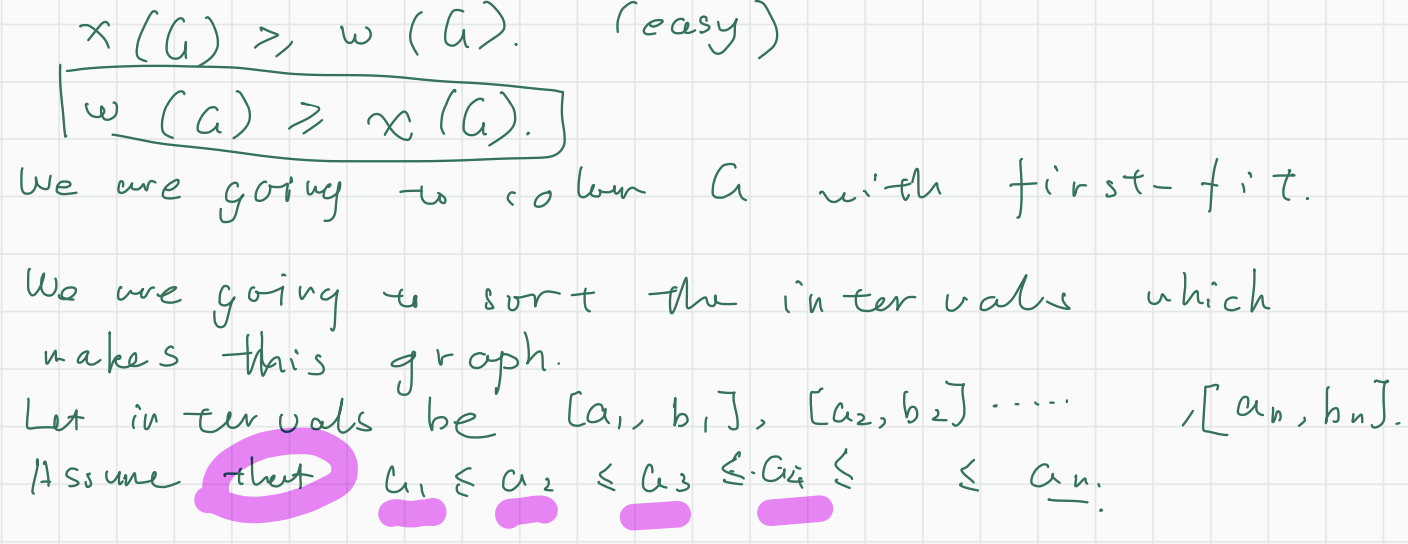 χ(G) ≥ w(G). (easy)
w(G) ≥ χ(G).
We are going to colour G with first-fit.
We are going to sort the intervals which
makes this graph.
Let intervals be [a₁, b₁], [a₂, b₂] ..... , [aₙ, bₙ].
Assume that a₁ ≤ a₂ ≤ a₃ ≤ a₄ ≤ ≤ aₙ.